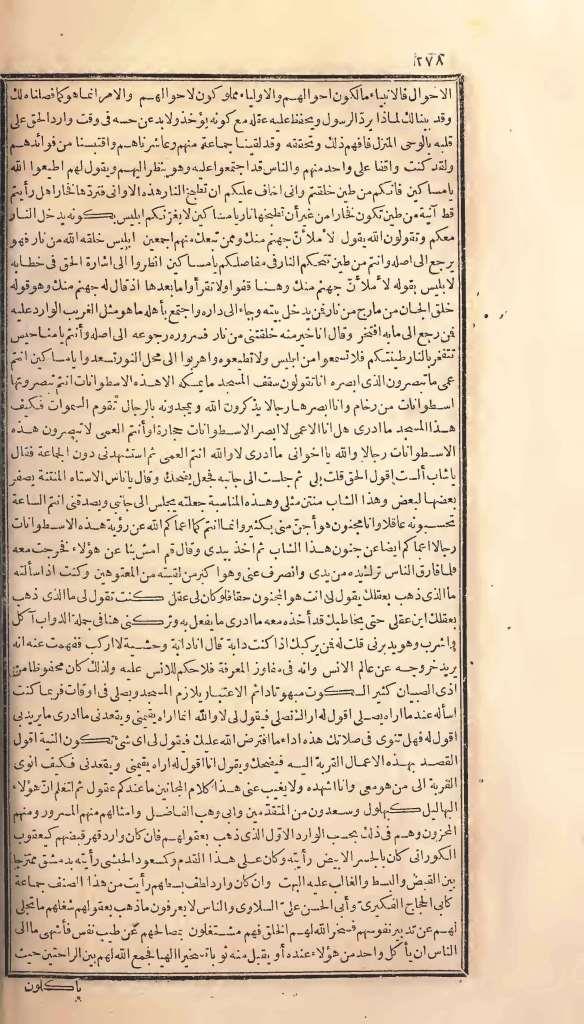 ٢٧٨
الاحوال فالانبياء مالكون احوالهم والاولياء مملوكون لاحوالهم والامر انما هو كما فصلناه لك
وقد بينا لك لماذا يردّ الرسول ويحفظ عليه عقله مع كونه يؤخذ ولا بد عن حسه فى وقت وارد الحق على
قلبه بالوحى المنزل فافهم ذلك وتحققه وقد لقينا جماعة منهم وعاشرناهم واقتبسنا من فوائدهم
ولقد كنت واقفا على واحد منهم والناس قد اجتمعوا عليه وهو ينظر اليهم ويقول لهم اطيعوا الله
يا مساكين فانكم من طين خلقتم وانى اخاف عليكم ان تطبخ النار هذه الاوانى فتردّها فخارا فهل رأيتم
قط آنية من طين تكون فخارا من غير أن تطبخها نار يا مساكين لا يغرّنكم ابليس بكونه يدخل النار
معكم وتقولون الله يقول لأملأنّ جهنم منك وممن تبعك منهم اجمعين ابليس خلقه الله من نار فهو
يرجع الى اصله وانتم من طين تتحكم النار فى مفاصلكم يا مساكين انظروا الى اشارة الحق فى خطابه
لابليس بقوله لأملأنّ جهنم منك وهنا قفوا ولا تقرأوا ما بعدها اذ قال له جهنم منك وهو قوله
خلق الجان من مارج من نار فمن يدخل بيته وجاء الى داره واجتمع بأهله ما هو مثل الغريب الوارد عليه
فمن رجع الى ما به افتخر وقال انا خير منه خلقتنى من نار فسروره رجوعه الى اصله وأنتم يا مناحيس
تتفخر بالنار طينتكم فلا تسمعوا من ابليس ولا تطيعوه واهربوا الى محل النور تسعدوا يا مساكين انتم
عمى ما تبصرون الذى ابصره انا تقولون سقف المسجد ما يمسكه الا هذه الاسطوانات انتم تبصرونها
اسطوانات من رخام وانا ابصرها رجالا يذكرون الله ويمجدونه بالرجال تقوم السموات فكيف
هذا المسجد ما ادرى هل انا الاعمى لا ابصر الاسطوانات حجارة أو أنتم العمى لا تبصرون هذه
الاسطوانات رجالا والله يا اخوانى ما ادرى لا والله انتم العمى ثم استشهدنى دون الجماعة فقال
يا شاب ألست اقول الحق قلت بلى ثم جلست الى جانبه فجعل يضحك وقال يا ناس الاستاه المنتنة يصفر
بعضها لبعض وهذا الشاب منتن مثلى وهذه المناسبة جعلته يجلس الى جانبى ويصدقنى انتم الساعة
تحسبونه عاقلا وانا مجنون هو أجنّ منى بكثير وانما انتم كما اعماكم الله عن رؤية هذه الاسطوانات
رجالا اعماكم ايضا عن جنون هذا الشاب ثم اخذ بيدى وقال قم امش بنا عن هؤلاء فخرجت معه
فلما فارق الناس ترك يده من يدى وانصرف عنى وهو اكبر من لقيته من المعتوهين وكنت اذا سألته
ما الذى ذهب بعقلك يقول لى انت هو المجنون حقا فلو كان لى عقل كنت تقول لى ما الذى ذهب
بعقلك اين عقلى حتى يخاطبك قد أخذه معه ما ادرى ما يفعل به وتركنى هنا فى جملة الدواب آكل
واشرب وهو يدبرنى قلت له فمن يركبك اذا كنت دابة قال انا دابة وحشية لا اركب ففهمت عنه انه
يريد خروجه عن عالم الانس وانه فى مفاوز المعرفة فلا حكم للانس عليه ولذلك كان محفوظا من
اذى الصبيان كثير السكون مبهوتا دائم الاعتبار يلازم المسجد ويصلى فى اوقات فربما كنت
اسأله عندما اراه يصلى اقول له اراك تصلى فيقول لى لا والله انما اراه يقيمنى ويقعدنى ما ادرى ما يريد بى
اقول له فهل تنوى فى صلاتك هذه اداء ما افترض الله عليك فيقول لى اى شئ تكون النية اقول
القصد بهذه الاعمال القربة اليه فيضحك ويقول انا اقول له اراه يقيمنى ويقعدنى فكيف انوى
القربة الى من هو معى وانا اشهده ولا يغيب عنى هذا كلام المجانين ما عندكم عقول ثم لتعلم انّ هؤلاء
البهاليل كبهلول وسعدون من المتقدّمين وابى وهب الفاضل وامثالهم منهم المسرور ومنهم
المحزون وهم فى ذلك بحسب الوارد الاوّل الذى ذهب بعقولهم فان كان وارد قهر قبضهم كيعقوب
الكورانى كان بالجسر الابيض رأيته وكان على هذا القدم وكمسعود الحبشى رأيته بدمشق ممتزجا
بين القبض والبسط والغالب عليه البهت وان كان وارد لطف بسطهم رأيت من هذا الصنف جماعة
كأبى الحجاج الغليرى وأبى الحسن على السلاوى والناس لا يعرفون ما ذهب بعقولهم شغلهم ما تجلى
لهم عن تدبير نفوسهم فسخر الله لهم الخلق فهم مشتغلون بمصالحهم عن طيب نفس فأشهى ما الى
الناس ان يأكل واحد من هؤلاء عنده أو يقبل منه ثوبا تسخيرا الهيا فجمع الله لهم بين الراحتين حيث
يأكلون